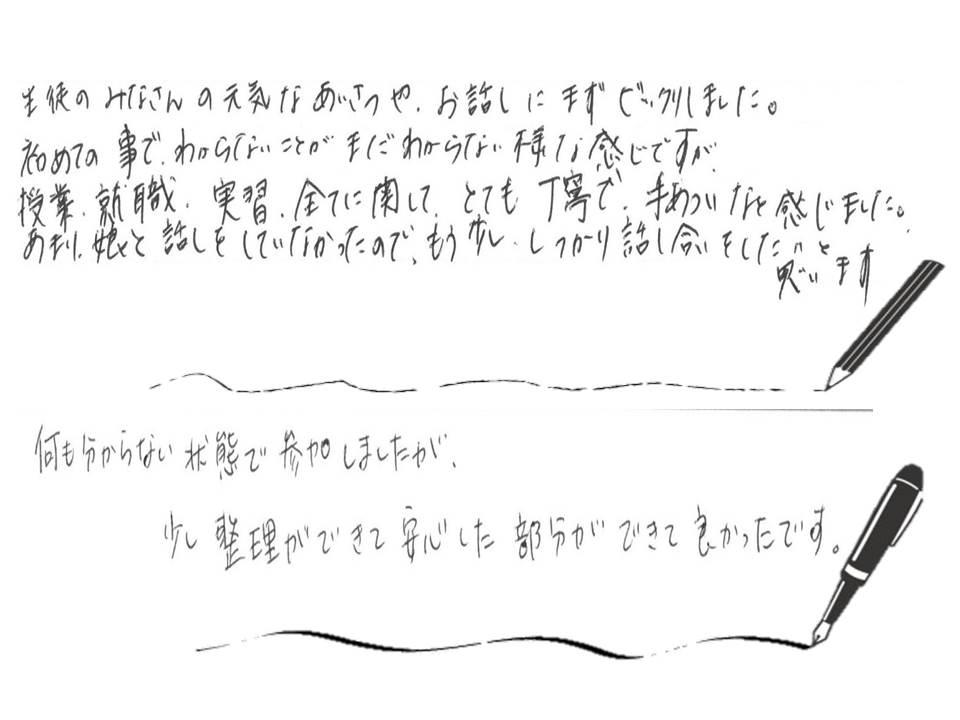 生徒のみなさんの元気なあいさつや、お話しにまずビックリしました。
初めての事で、わからないことがまだわからない様な感じですが、
授業、就職、実習、全てに関して、とても丁寧で、手あついなと感じました。
あまり、娘と話しをしていなかったので、もう少し、しっかり話し合いをしたいと
思います
何も分からない状態で参加しましたが、
少し整理ができて安心した部分ができて良かったです。